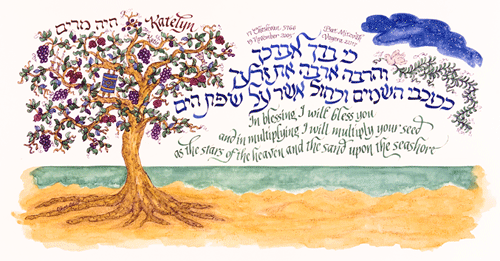 חיה מרים Katelyn
17 Cheshvan, 5766 Bat Mitzvah
19 November 2005 Vayera 22:17
כי ברך אברכך
והרבה ארבה את זרעך
ככוכבי השמים וכחול אשר על שפת הים
In blessing I will bless you
and in multiplying I will multiply your seed
as the stars of the heaven and the sand upon the seashore